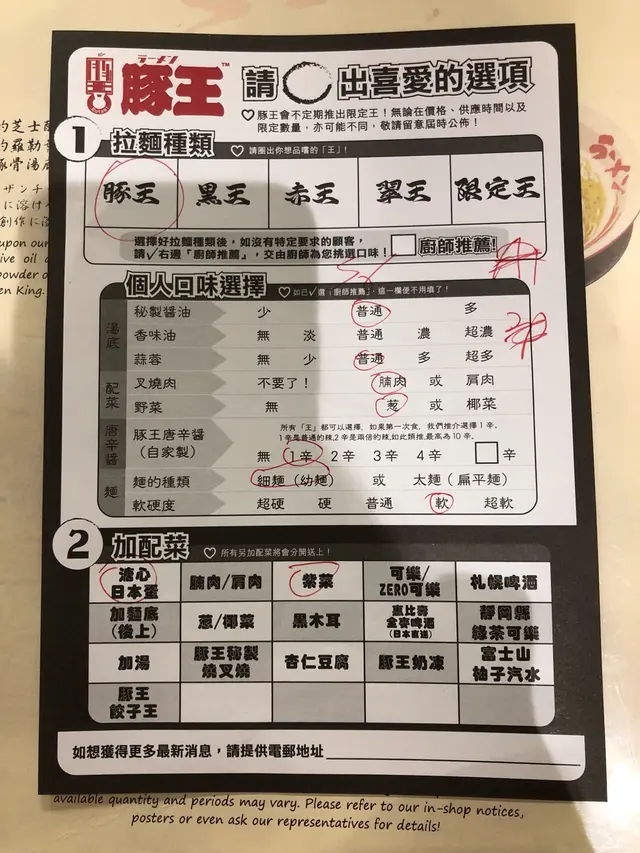 ラーメン
豚王™ 請 出喜愛的選項
♡豚王會不定期推出限定王！無論在價格、供應時間以及
限定數量，亦可能不同，敬請留意屆時公佈！
1 拉麵種類 ♡ 請圈出你想品嚐的「王」！
豚王 黑王 赤王 翠王 限定王
選擇好拉麵種類後，如沒有特定要求的顧客，
請√右邊「廚師推薦」，交由廚師為您挑選口味！ 廚師推薦！
個人口味選擇 ♡ 如已√選「廚師推薦」，這一欄便不用填了！
湯底
秘製醬油 少 普通 多
香味油 無 淡 普通 濃 超濃
蒜蓉 無 少 普通 多 超多
配菜
叉燒肉 不要了！ 腩肉 或 肩肉
野菜 無 葱 或 椰菜
唐辛醬
豚王唐辛醬
（自家製）
所有「王」都可以選擇，如果第一次食，我們推介選擇1辛。
1辛是普通的辣，2辛是兩倍的辣，如此類推，最高為10辛。
無 1辛 2辛 3辛 4辛 辛
麵
麵的種類 細麵（幼麵） 或 太麵（扁平麵）
軟硬度 超硬 硬 普通 軟 超軟
2 加配菜 ♡ 所有另加配菜將會分開送上！
溏心
日本蛋
腩肉/肩肉
紫菜
可樂/
ZERO可樂
札幌啤酒
加麵底
（後上）
葱/椰菜
黑木耳
惠比壽
金麥啤酒
（日本直送）
靜岡縣
綠茶可樂
加湯
豚王秘製
燒叉燒
杏仁豆腐
豚王奶凍
富士山
柚子汽水
豚王
餃子王
如想獲得更多最新消息，請提供電郵地址
available quantity and periods may vary. Please refer to our in-shop notices,
posters or even ask our representatives for details!
的芝士
的羅勒
豚骨湯底
ザンチ
に溶け
創作に溶
upon our
ive oil
powder o
en King.